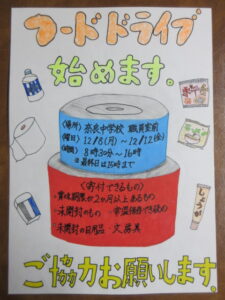 フードドライブ
始めます。
〈場所〉奈良中学校 職員室前
〈曜日〉12/8(月)～12/12(金)
〈時間〉8時30分～16時
※最終日は15時まで
〈寄付できるもの〉
・賞味期限が2か月以上あるもの
・未開封のもの ・常温保存できるもの
・未開封の日用品 ・文房具
しょうが
ご協力お願いします。